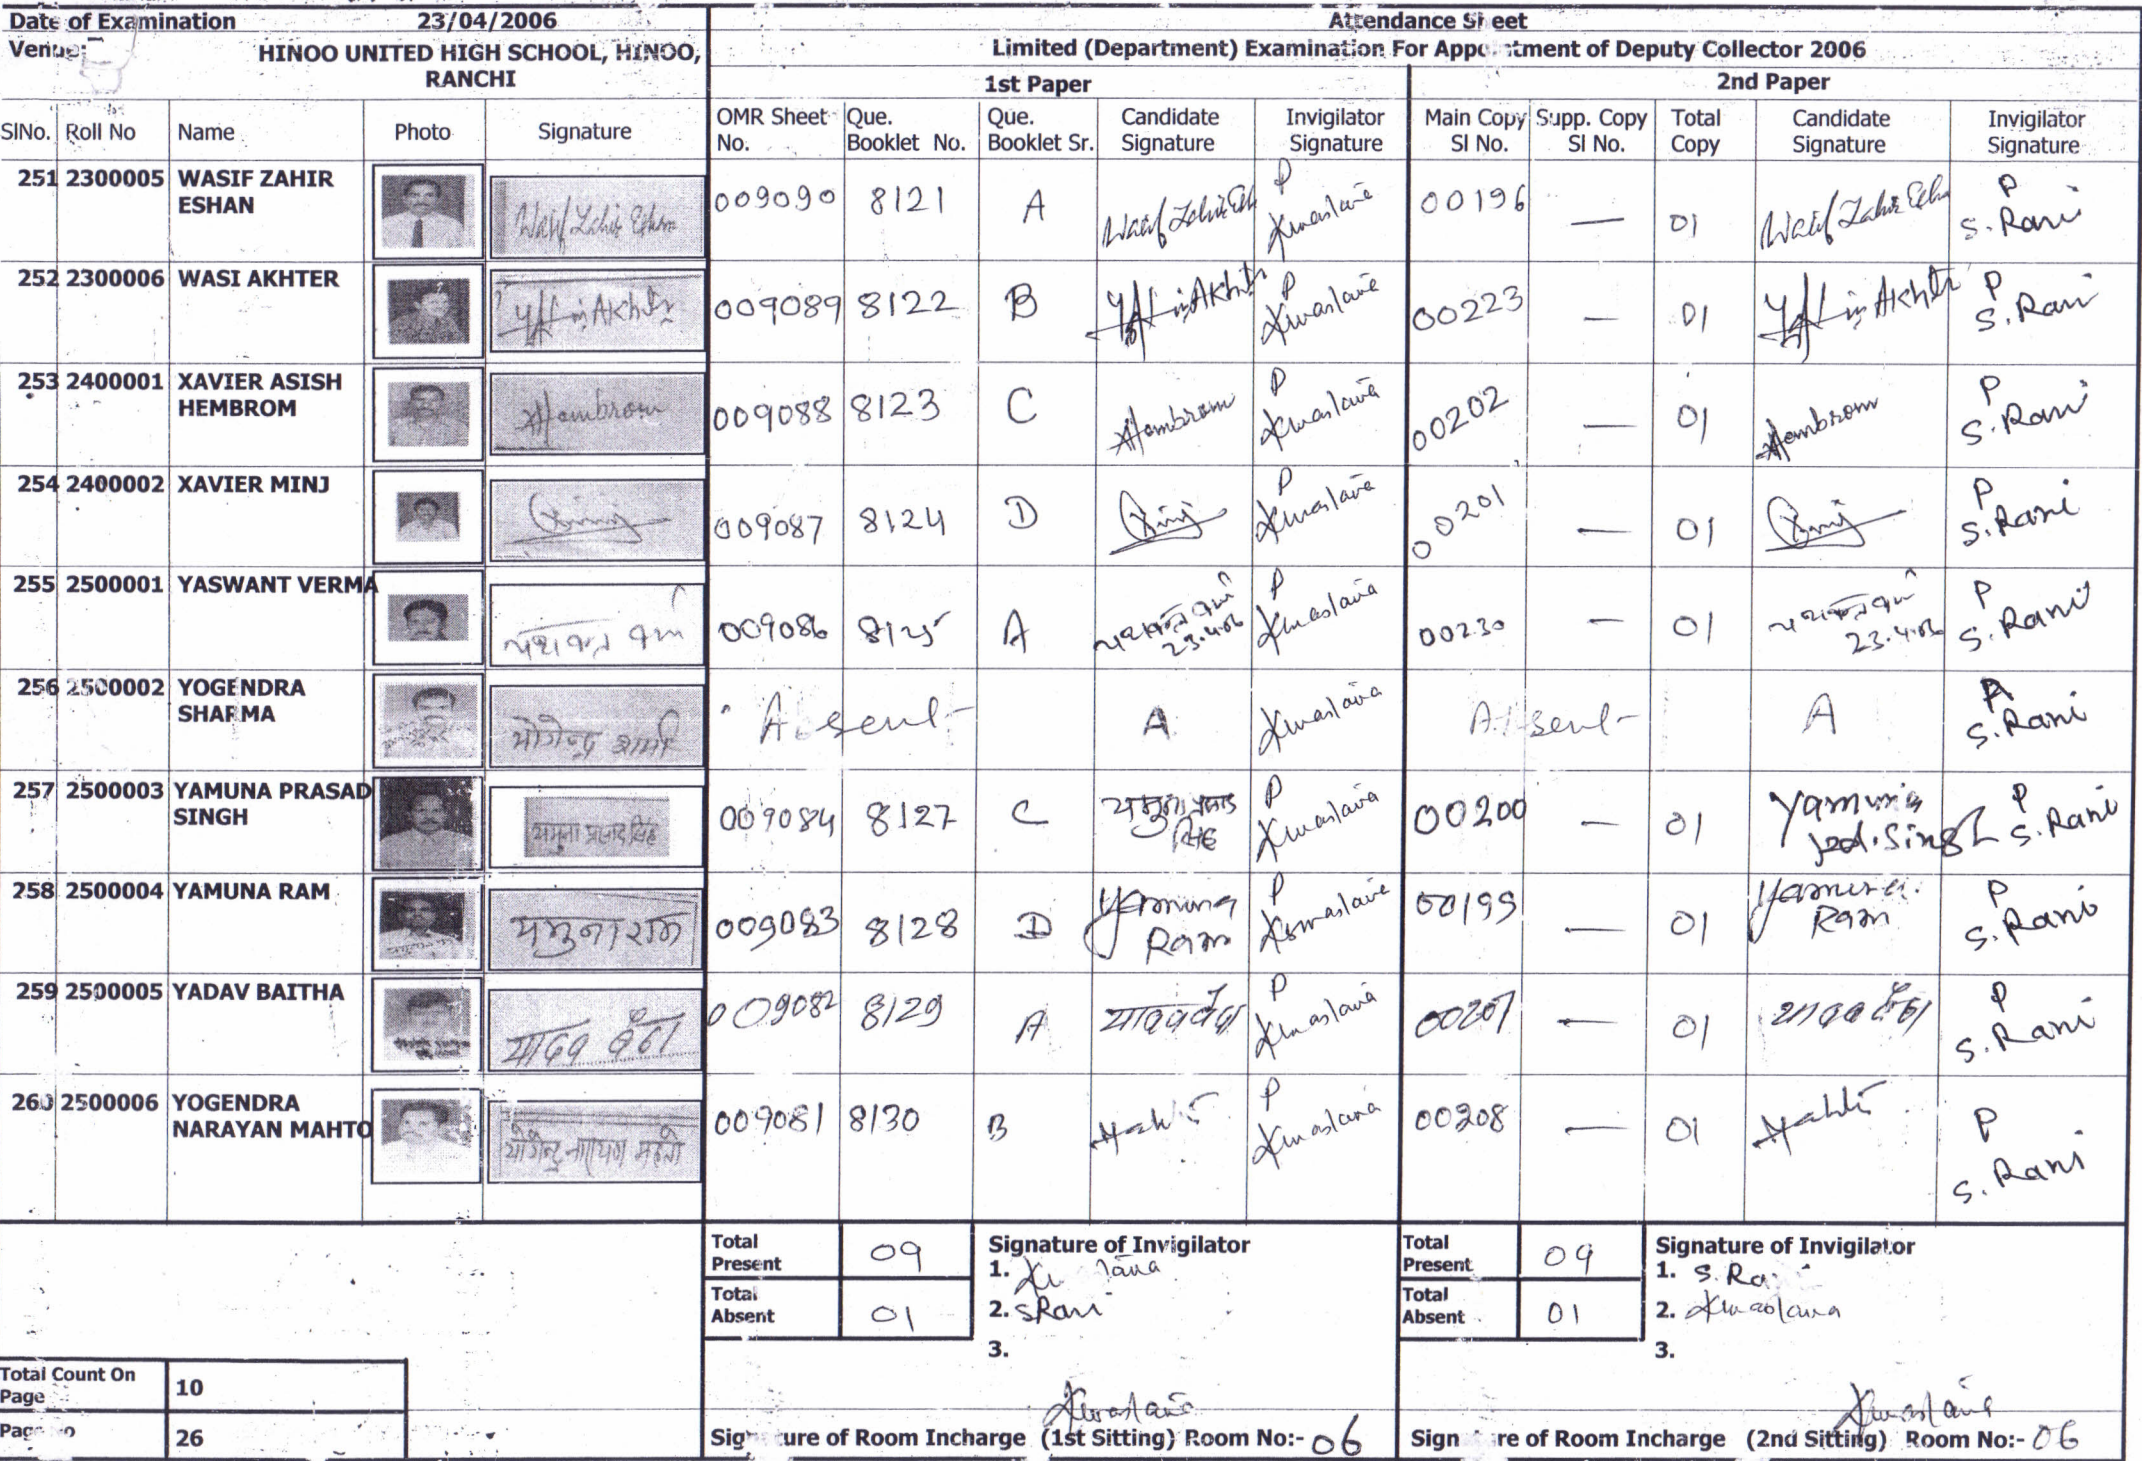 Date of Examination 23/04/2006 Attendance Sheet
Venue: HINOO UNITED HIGH SCHOOL, HINOO, RANCHI
Limited (Department) Examination For Appointment of Deputy Collector 2006
1st Paper 2nd Paper
SlNo. Roll No Name Photo Signature OMR Sheet No. Que. Booklet No. Que. Booklet Sr. Candidate Signature Invigilator Signature Main Copy Sl No. Supp. Copy Sl No. Total Copy Candidate Signature Invigilator Signature
251 2300005 WASIF ZAHIR ESHAN 009090 8121 A P 00196 — 01 P S. Rani
252 2300006 WASI AKHTER 009089 8122 B P 00223 — 01 P S. Rani
253 2400001 XAVIER ASISH HEMBROM Hembrom 009088 8123 C Hembrom P 00202 — 01 Hembrom P S. Rani
254 2400002 XAVIER MINJ 009087 8124 D P 00201 — 01 P S. Rani
255 2500001 YASWANT VERMA 009086 8125 A 23.4.06 P 00230 — 01 23.4.06 P S. Rani
256 2500002 YOGENDRA SHARMA योगेन्द्र शर्मा Absent A Absent A A S. Rani
257 2500003 YAMUNA PRASAD SINGH यमुना प्रसाद सिंह 009084 8127 C यमुना प्रसाद सिंह P 00200 — 01 Yamuna Pd. Singh P S. Rani
258 2500004 YAMUNA RAM यमुना राम 009083 8128 D Yamuna Ram P 00199 — 01 Yamuna Ram P S. Rani
259 2500005 YADAV BAITHA यादव बैठा 009082 8129 A यादव बैठा P 00207 — 01 यादव बैठा P S. Rani
260 2500006 YOGENDRA NARAYAN MAHTO योगेन्द्र नारायण महतो 009081 8130 B P 00208 — 01 P S. Rani
Total Present 09 Signature of Invigilator Total Present 09 Signature of Invigilator
1. 1. S. Rani
Total Absent 01 2. S Rani Total Absent 01 2.
3. 3.
Total Count On Page 10
Page No 26
Signature of Room Incharge (1st Sitting) Room No:- 06 Signature of Room Incharge (2nd Sitting) Room No:- 06